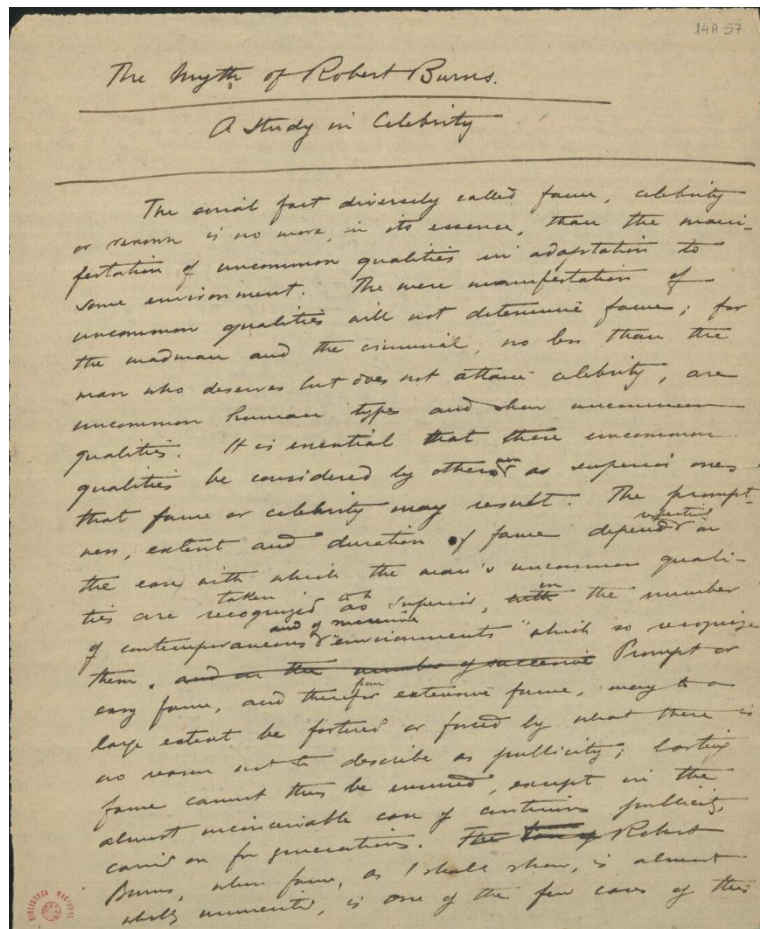 14A-57
The Myth of Robert Burns.
A Study in Celebrity
The social fact diversely called fame, celebrity
or renown is no more, in its essence, than the mani-
festation of uncommon qualities in adaptation to
some environment. The mere manifestation of
uncommon qualities will not determine fame; for
the madman and the criminal, no less than the
man who deserves but does not attain celebrity, are
uncommon human types and show uncommon
qualities. It is essential that these uncommon
qualities be considered by other men as superior ones
that fame or celebrity may result. The prompt-
ness, extent and duration of fame depend respectively on
the ease with which the man's uncommon quali-
ties are recognized taken to be as superior, with on the number
of contemporaneous and of successive "environments" which so recognize
them. and on the number of successive Prompt or
easy fame, and therefor extensive fame, may to a
large extent be fostered or forced by what there is
no reason not to describe as publicity; lasting
fame cannot thus be ensured, except in the
almost inconceivable case of continuous publicity,
carried on for generations. The fame of Robert
Burns, whose fame, as I shall show, is almost
wholly unmerited, is one of the few cases of this
BIBLIOTECA NACIONAL